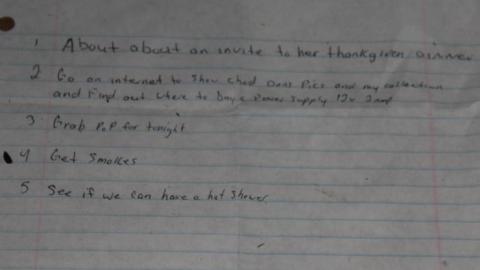 1 About about an invite to her thankgiven dinner
2 Go on internet to show chad Pics and my collection
and Find out where to buy a Power supply 12v 2amp
3 Grab PoP for tonight
4 Get Smokes
5 See if we can have a hot shower